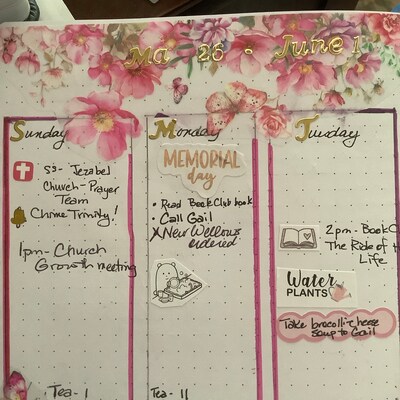 Ma 26 • June 1
Sunday
S3- Jezabel
Church-Prayer
Team
Chime Trinity!
1pm- Church
Growth meeting
Tea- 1
Monday
MEMORIAL
day
• Read Book Club book
• Call Gail
X New Wellows
ordered
Tea- 11
Tuesday
2pm- Book C
The Ride of H
Life
Water
PLANTS
Take brocolli-cheese
soup to Gail